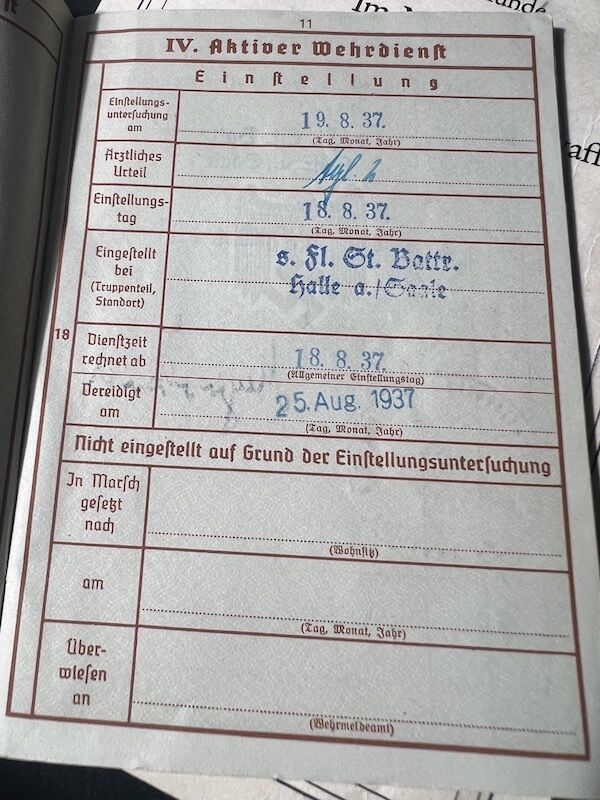 11
IV. Aktiver Wehrdienst
Einstellung
Einstellungs-
untersuchung
am
19. 8. 37.
(Tag, Monat, Jahr)
Ärztliches
Urteil
tgl 2
Einstellungs-
tag
18. 8. 37.
(Tag, Monat, Jahr)
Eingestellt
bei
(Truppenteil,
Standort)
s. Fl. St. Battr.
Halle a./Saale
18
Dienstzeit
rechnet ab
18. 8. 37.
(Allgemeiner Einstellungstag)
Vereidigt
am
25. Aug. 1937
(Tag, Monat, Jahr)
Nicht eingestellt auf Grund der Einstellungsuntersuchung
In Marsch
gesetzt
nach
(Wohnsitz)
am
(Tag, Monat, Jahr)
Über-
wiesen
an
(Wehrmeldeamt)